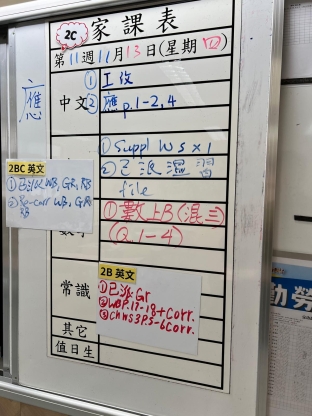 2C 家課表
第11週11月13日(星期四)
應
中文
①工改
②應 p.1-2, 4
①Suppl WS x 1
②已派溫習
file
2BC 英文
①已派 WB, GR, RS
②
①數上B(混三)
(Q.1-4)
常識
2B 英文
①已派Gr
②WBP.17-18+Corr.
③ChWS3P.5-6Corr.
其它
值日生